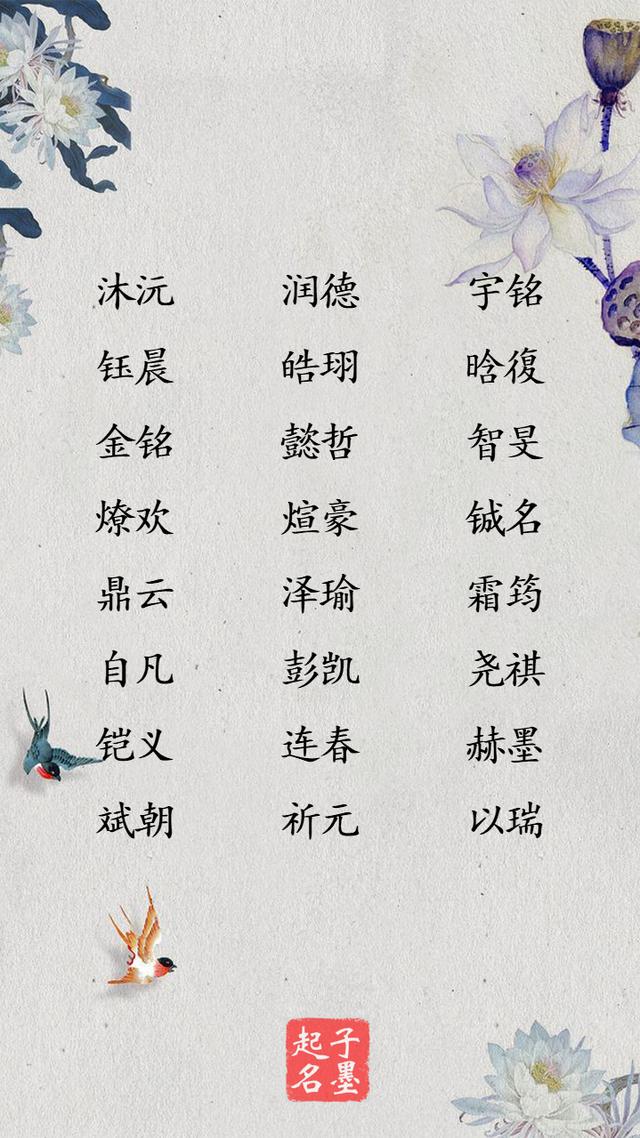 沐沅 润德 宇铭
钰晨 皓珝 晗復
金铭 懿哲 智旻
燎欢 煊豪 铖名
鼎云 泽瑜 霜筠
自凡 彭凯 尧祺
铠义 连春 赫墨
斌朝 祈元 以瑞
子墨
起名